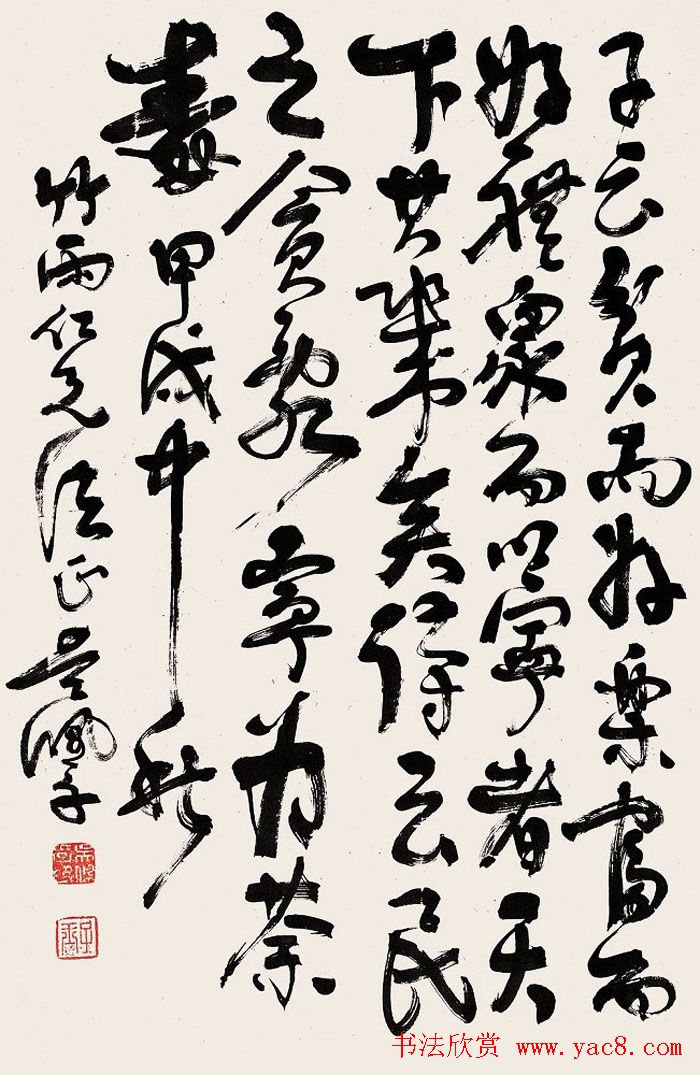 子云貧而好樂富而
好禮眾而以寧者天
下其幾矣詩云民
之貪亂寧為荼
毒 甲戌中秋
竹雨仁兄法正 吳佩孚
子玉
书法欣赏 www.yac8.com